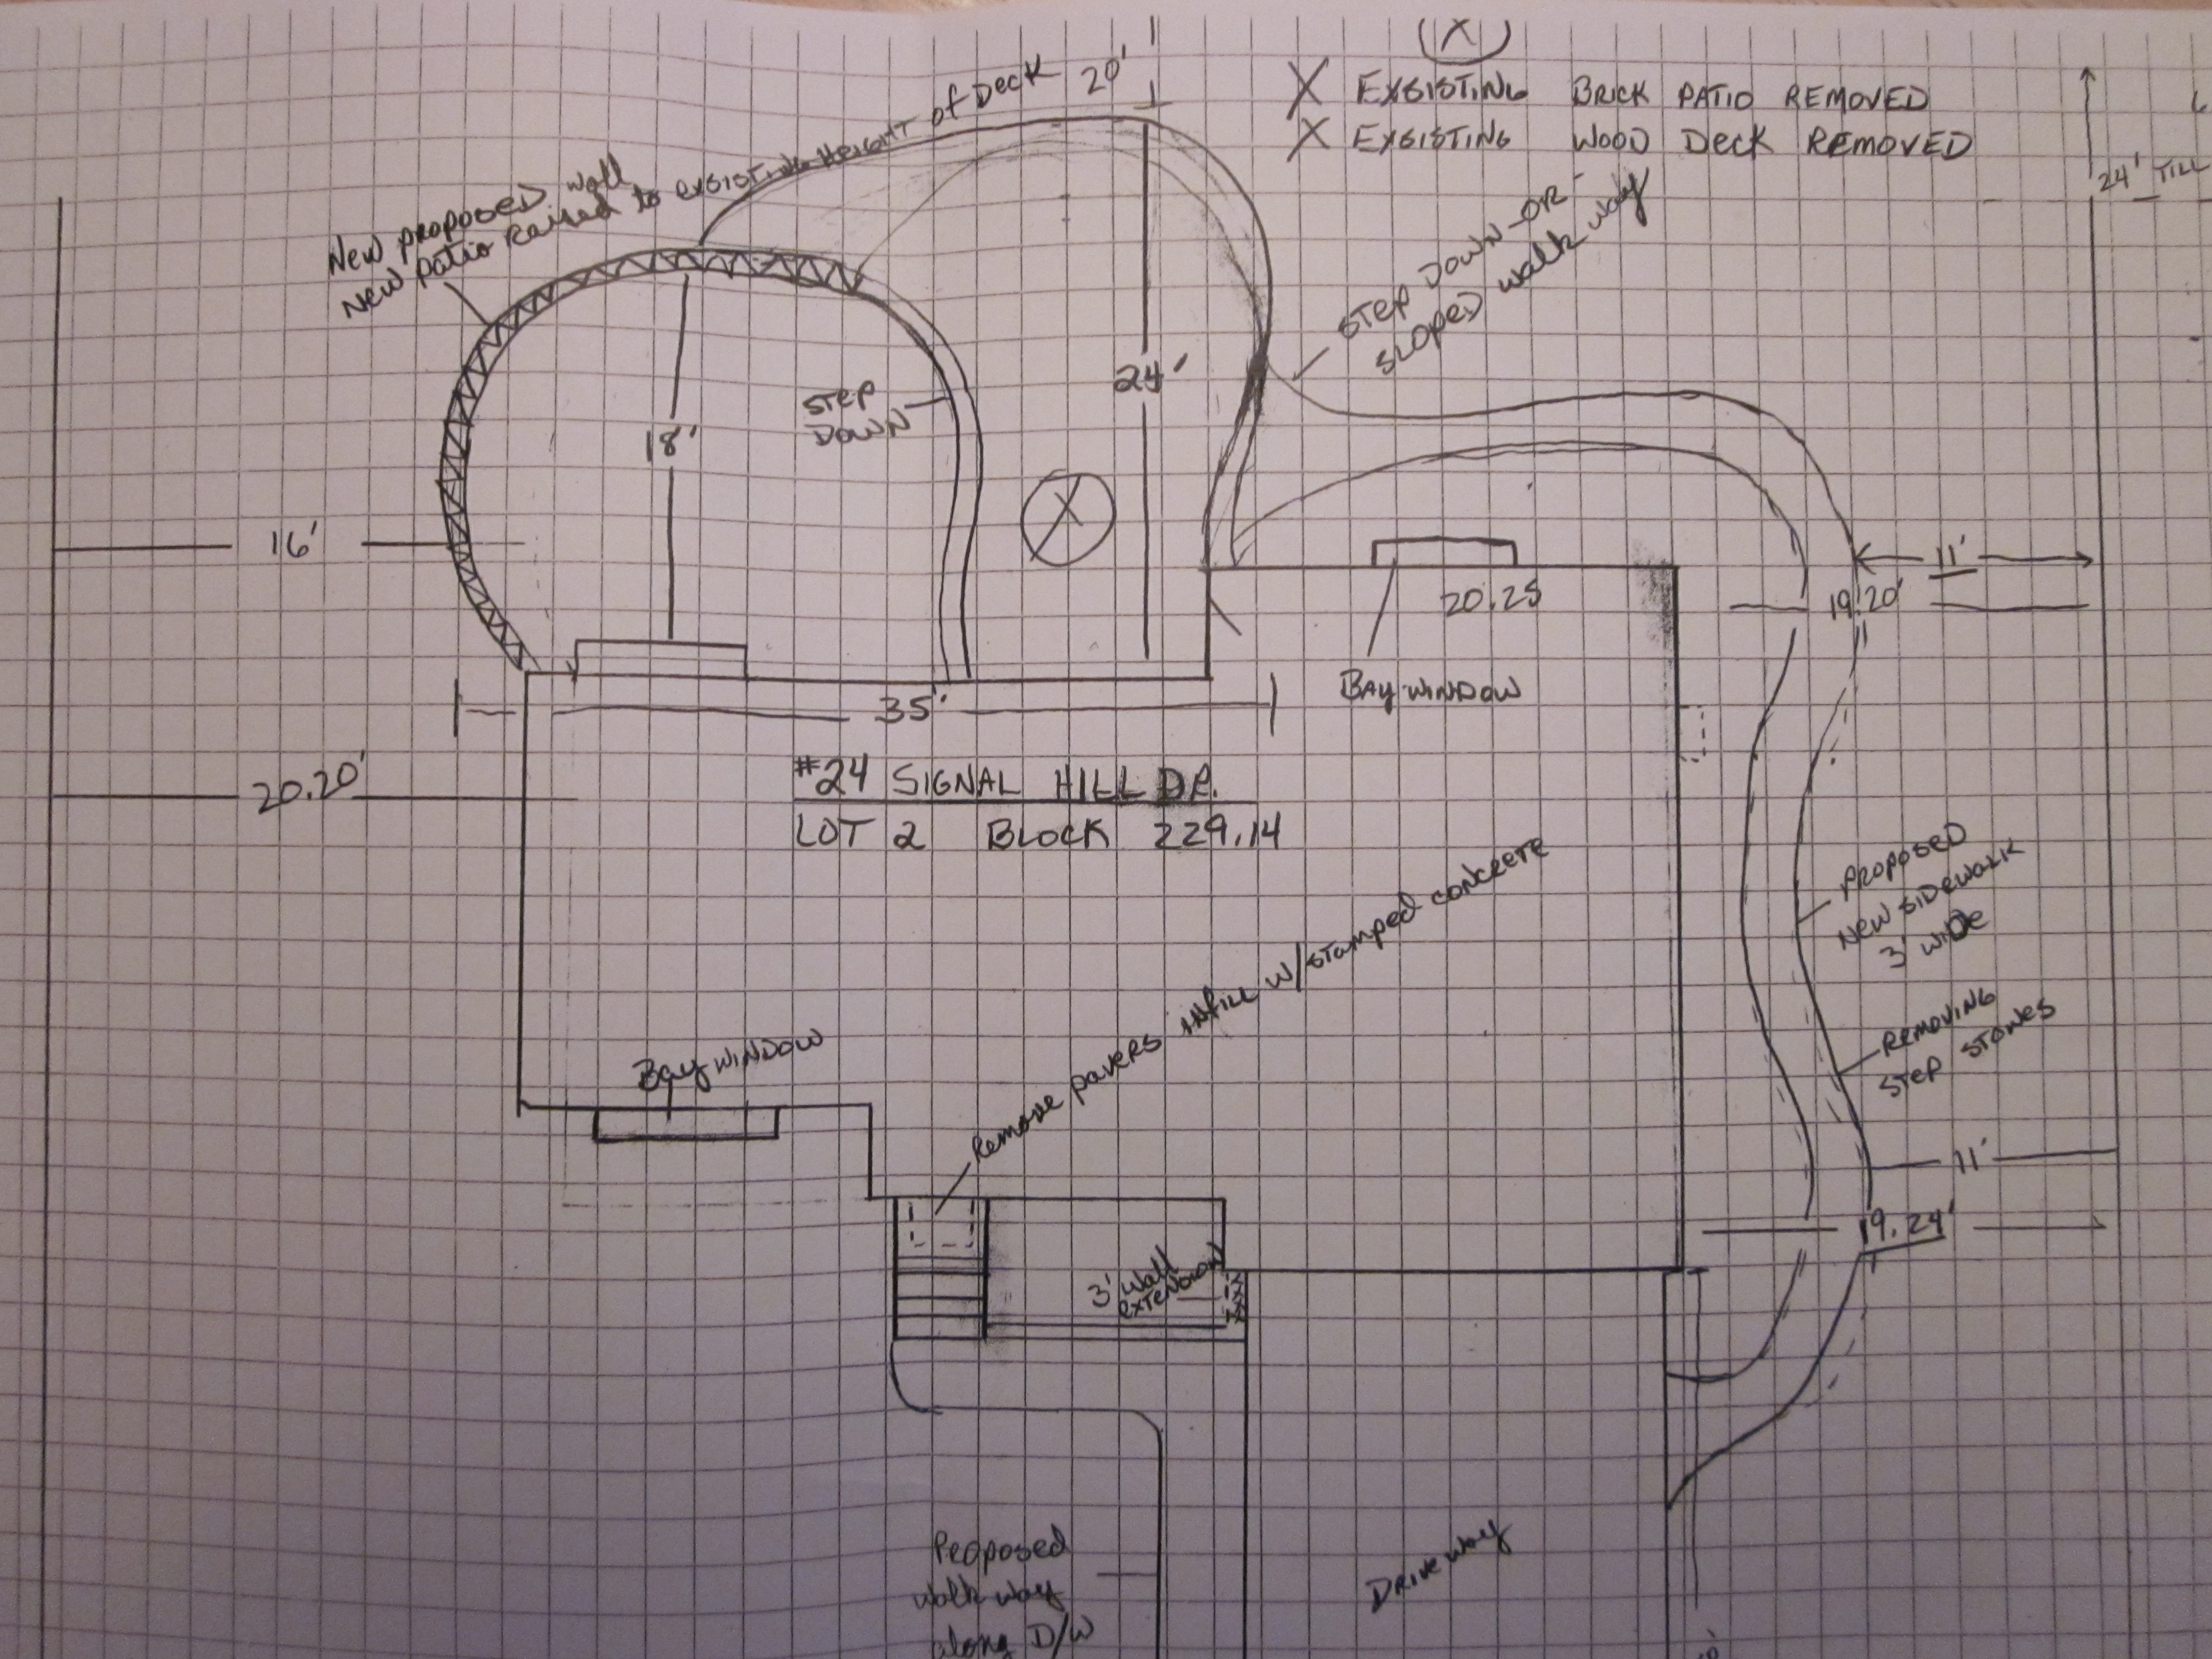 (X)
X EXSISTING BRICK PATIO REMOVED
X EXSISTING WOOD DECK REMOVED
24' TILL
20'
New proposed wall
New patio raised to exsisting Height of Deck
STEP DOWN -OR-
SLOPED walk way
18'
STEP
DOWN
24'
X
16'
11'
19.20'
20.25
BAY WINDOW
35'
20.20'
#24 SIGNAL HILL DR.
LOT 2 BLOCK 229.14
PROPOSED
NEW SIDEWALK
3' WIDE
REMOVING
STEP STONES
Remove pavers INFILL W/ STamped CONCRETE
Bay WINDOW
11'
19.24'
3' wall
EXTENSION
Proposed
walk way
along D/W
DRIVEWAY